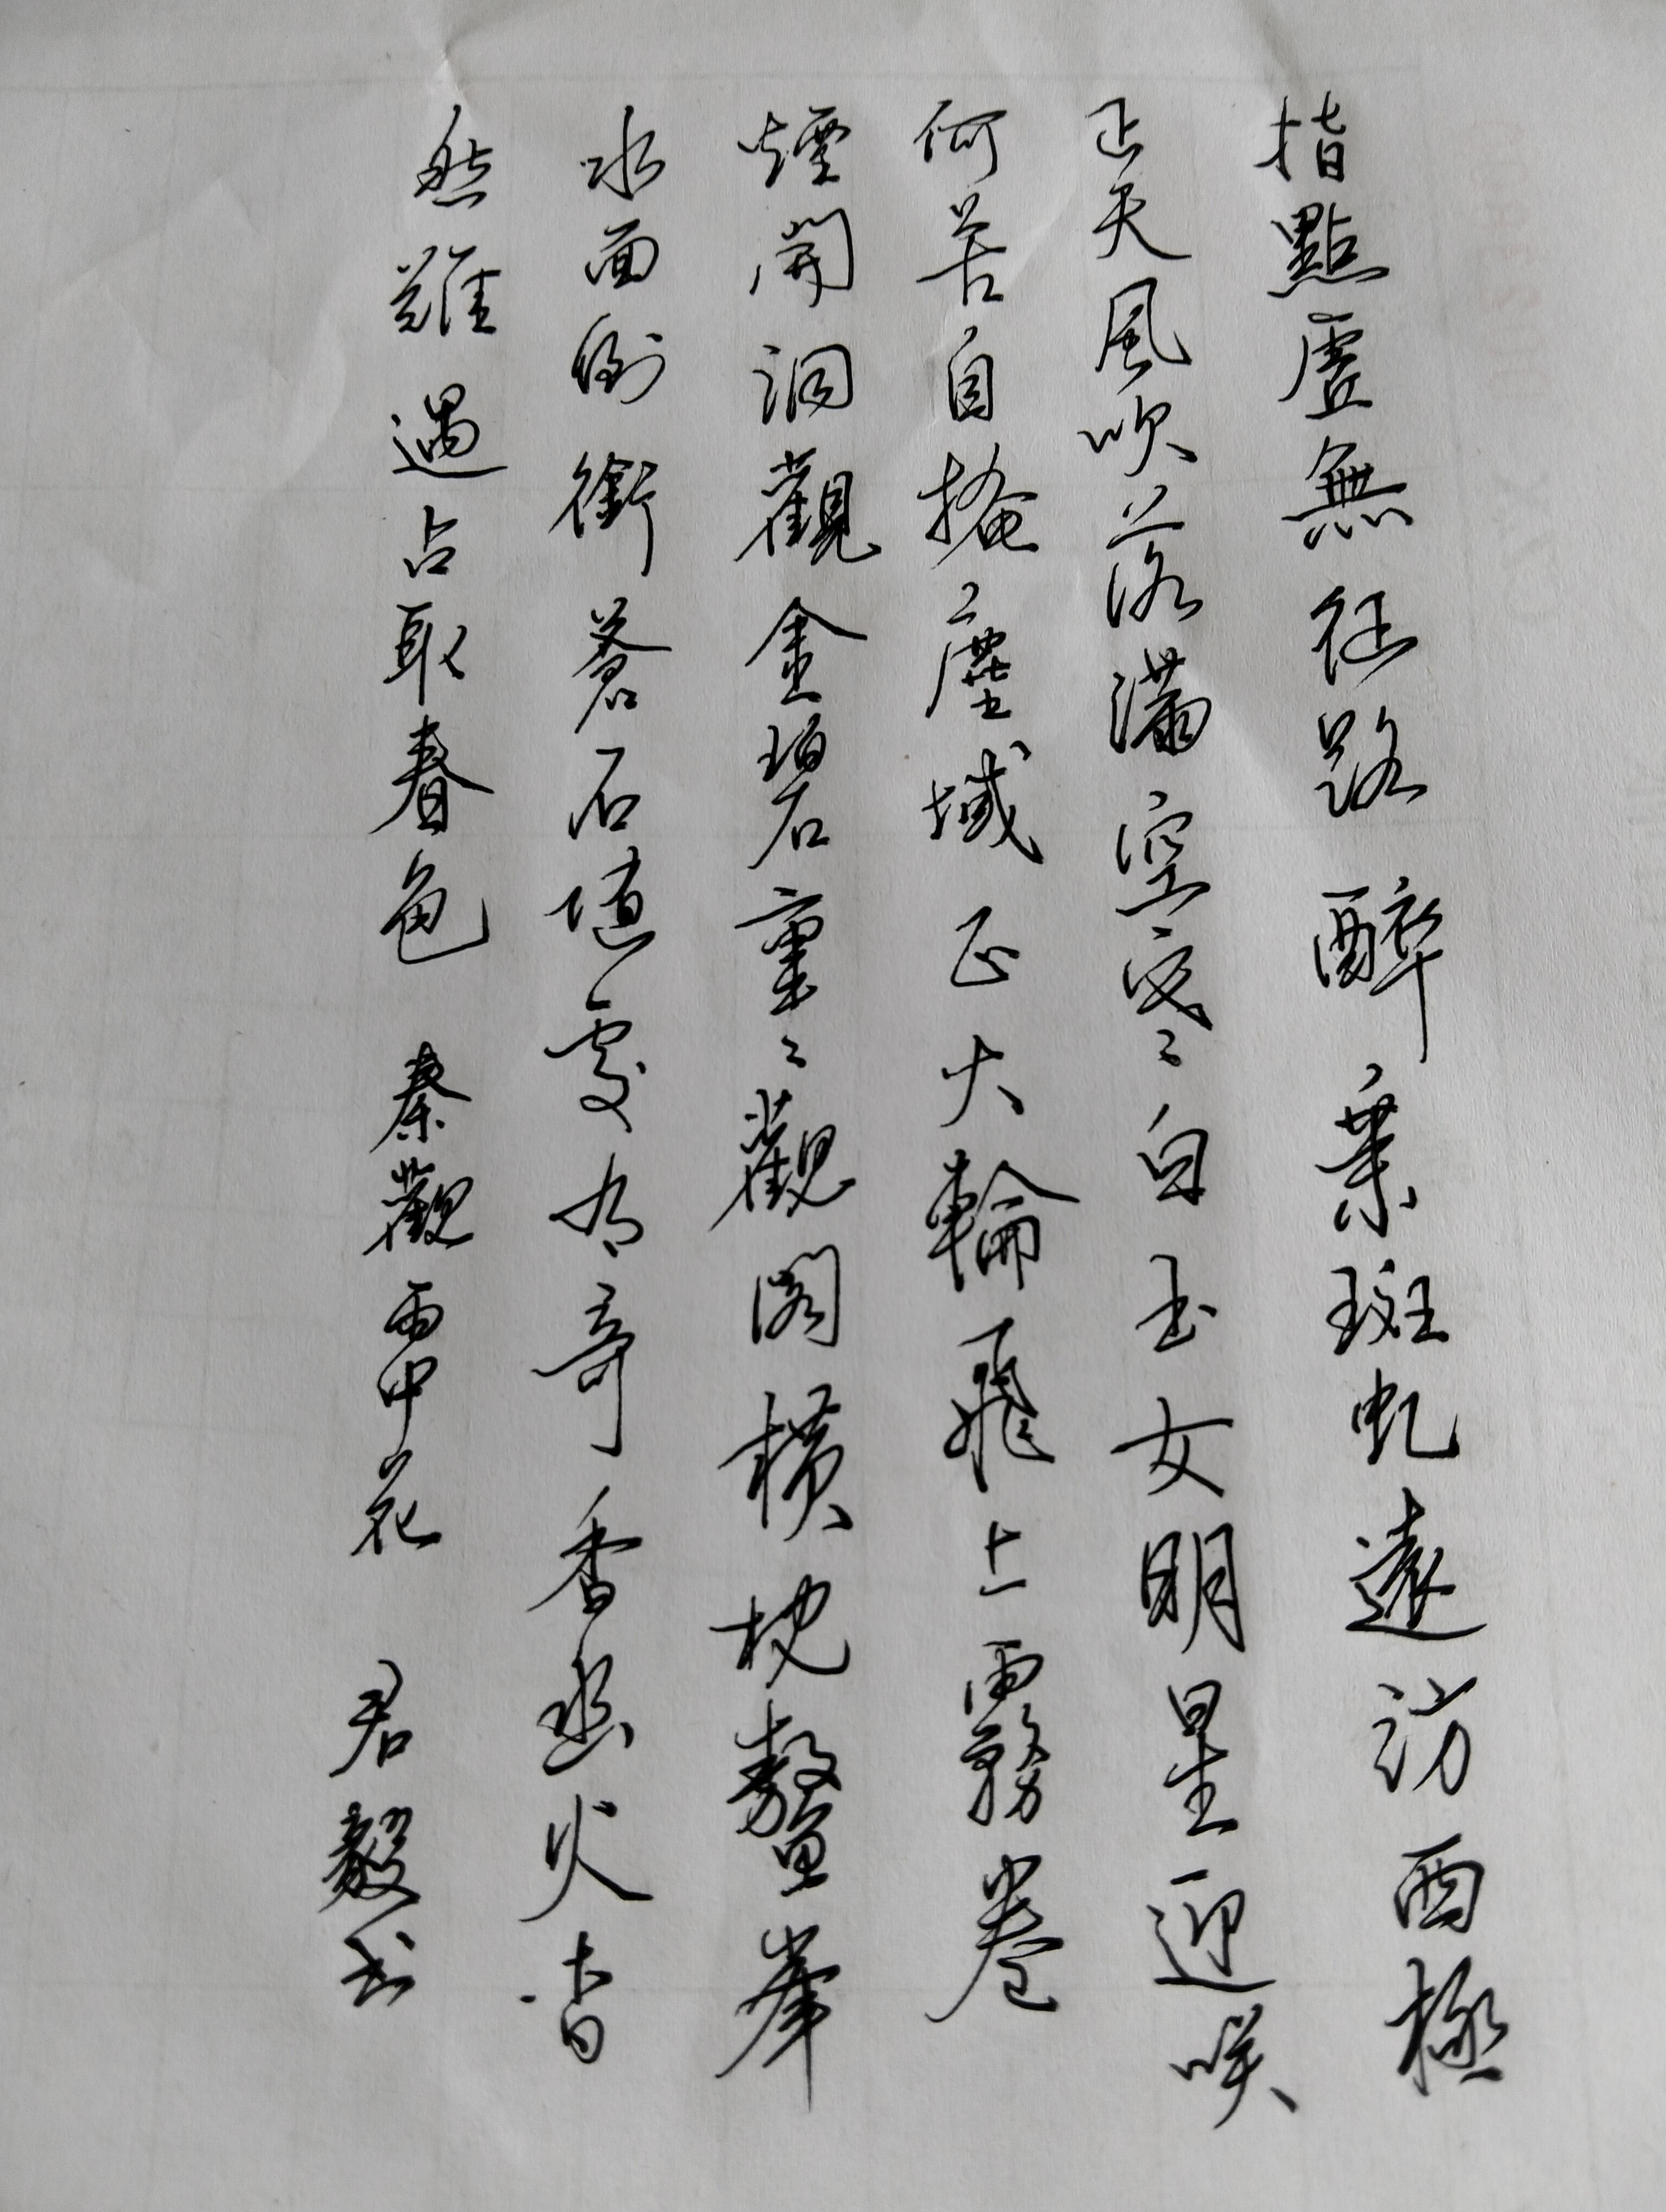 指點虛無征路醉乘斑虬遠訪西極
正天風吹落滿空寒白玉女明星迎咲
何苦自掩塵域正火輪飛上霧卷
煙開洞觀金碧重〻觀閣橫枕鰲峯
水面倒銜蒼石随處有奇香幽火杳
然難遇占取春色 秦觀雨中花 君毅书